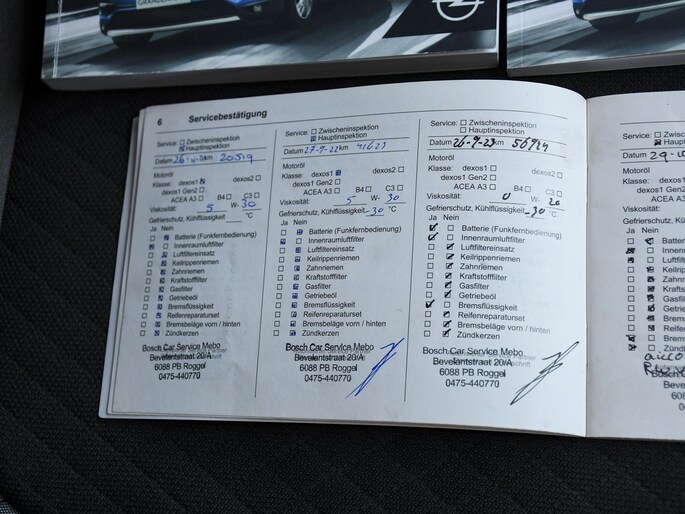 GRANDLAND
6 Servicebestätigung
Service: Zwischeninspektion
Hauptinspektion
Datum 26 km 20519
Motoröl
Klasse: dexos1 dexos2
dexos1 Gen2
ACEA A3 B4 C3
Viskosität: 5 W- 30
Gefrierschutz, Kühlflüssigkeit °C
Ja Nein
Batterie (Funkfernbedienung)
Innenraumluftfilter
Luftfiltereinsatz
Keilrippenriemen
Zahnriemen
Kraftstofffilter
Gasfilter
Getriebeöl
Bremsflüssigkeit
Reifenreparaturset
Bremsbeläge vorn / hinten
Zündkerzen
Bosch Car Service Mebo
Bevelantstraat 20/A
6088 PB Roggel
0475-440770
Service: Zwischeninspektion
Hauptinspektion
Datum 27-9-22 km 41623
Motoröl
Klasse: dexos1 dexos2
dexos1 Gen2
ACEA A3 B4 C3
Viskosität: 5 W- 30
Gefrierschutz, Kühlflüssigkeit -30 °C
Ja Nein
Batterie (Funkfernbedienung)
Innenraumluftfilter
Luftfiltereinsatz
Keilrippenriemen
Zahnriemen
Kraftstofffilter
Gasfilter
Getriebeöl
Bremsflüssigkeit
Reifenreparaturset
Bremsbeläge vorn / hinten
Zündkerzen
Bosch Car Service Mebo
Bevelantstraat 20/A
6088 PB Roggel
0475-440770
Service: Zwischeninspektion
Hauptinspektion
Datum 26-9-23 km
Motoröl
Klasse: dexos1 dexos2
dexos1 Gen2
ACEA A3 B4 C3
Viskosität: 0 W- 20
Gefrierschutz, Kühlflüssigkeit -30 °C
Ja Nein
Batterie (Funkfernbedienung)
Innenraumluftfilter
Luftfiltereinsatz
Keilrippenriemen
Zahnriemen
Kraftstofffilter
Gasfilter
Getriebeöl
Bremsflüssigkeit
Reifenreparaturset
Bremsbeläge vorn / hinten
Zündkerzen
Bosch Car Service Mebo
Bevelantstraat 20/A
6088 PB Roggel
0475-440770
Service: Zw
Ha
Datum 29-10
Motoröl
Klasse: dex
dexos1 G
ACEA
Viskosität:
Gefrierschutz, Kü
Ja Nein
Batteri
Innen
Luftfi
Keilri
Zahn
Kraft
Gasf
Getr
Bren
Reif
Bren
Zün
Bosch C
Beve
608
04